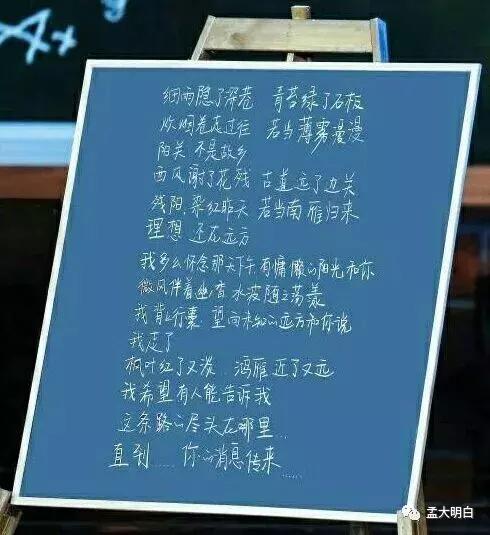 A x
细雨隐了深巷 青苔绿了石板
炊烟卷走过往 若当薄雾漫漫
阳关 不是故乡
西风谢了花残 古道远了边关
残阳.染红昨天 若当南雁归来
理想 还在远方
我多么怀念那天下午,有慵懒的阳光和你
微风伴着幽香 水波随之荡漾
我背上行囊 望向未知的远方和你说
我走了
枫叶红了又泼 鸿雁近了又远
我希望有人能告诉我
这条路的尽头在哪里...
直到...... 你的消息传来......
孟大明白